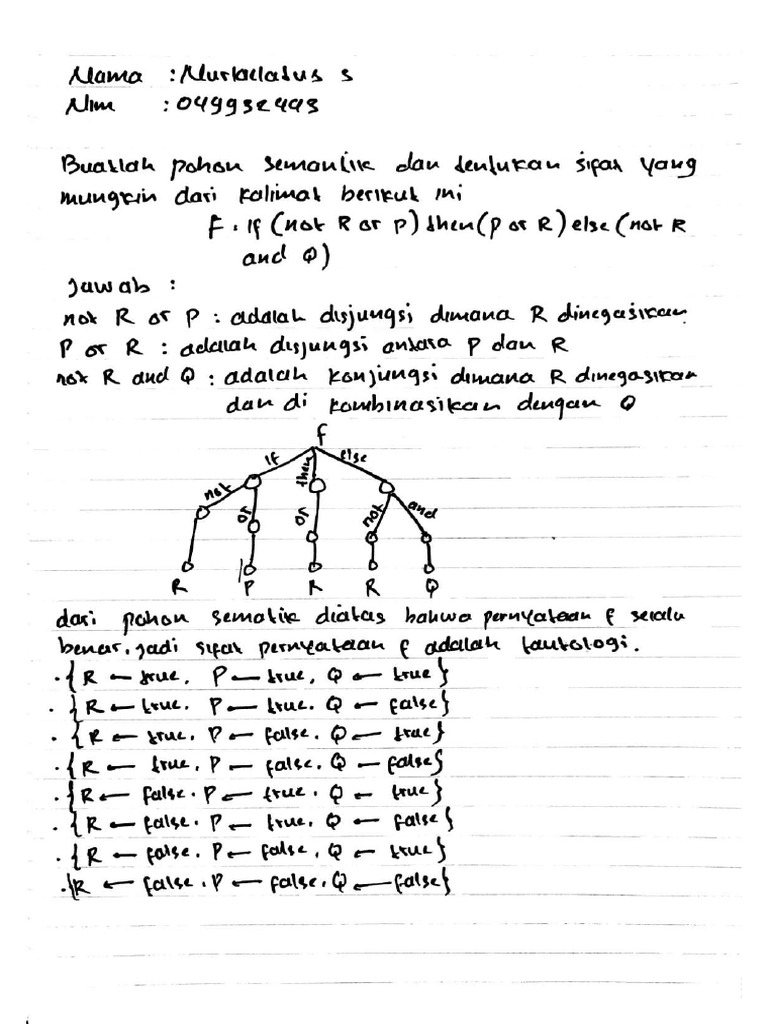 Nama : Nurlaelatus s
Nim : 049932493
Buatlah pohon semantik dan tentukan sifat yang
mungkin dari kalimat berikut ini
F : if (not R or P) then (P or R) else (not R
and Q)
Jawab :
not R or P : adalah disjungsi dimana R dinegasikan.
P or R : adalah disjungsi antara P dan R
not R and Q : adalah konjungsi dimana R dinegasikan
dan di kombinasikan dengan Q
f
if then else
not or or not and
R P R R Q
dari pohon sematik diatas bahwa pernyataan f selalu
benar. jadi sifat pernyataan f adalah tautologi.
. {R ← true, P ← true, Q ← true}
. {R ← true. P ← true. Q ← false}
. {R ← true. P ← false. Q ← true}
. {R ← true, P ← false. Q ← false}
. {R ← false. P ← true. Q ← true}
. {R ← false. P ← true, Q ← false}
. {R ← false. P ← false, Q ← true}
. {R ← false. P ← false. Q ← false}